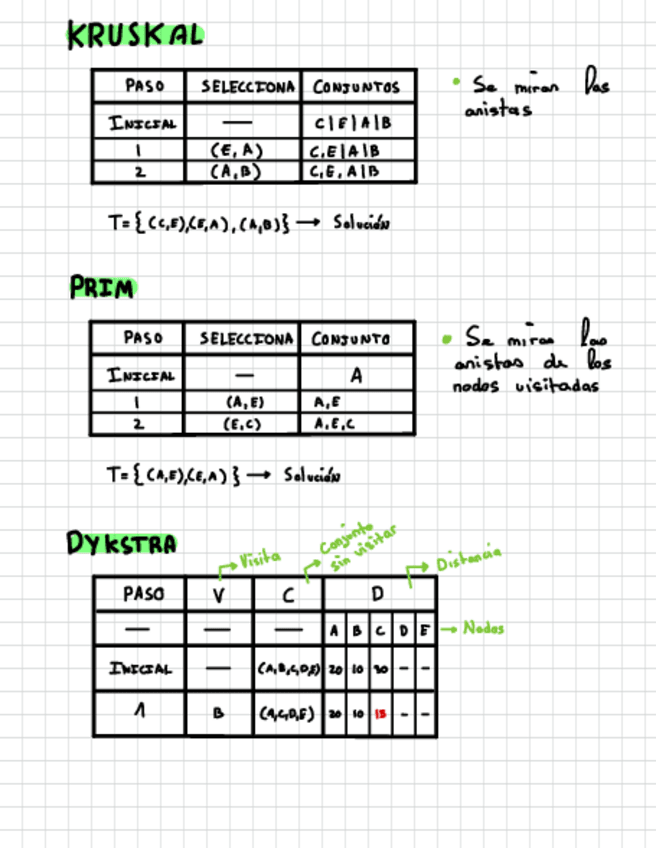 KRUSKAL
PASO SELECCIONA CONJUNTOS
INICIAL — C|E|A|B
1 (E, A) C,E|A|B
2 (A,B) C,E,A|B
• Se miran las
aristas
T={(C,E),(E,A),(A,B)} → Solución
PRIM
PASO SELECCIONA CONJUNTO
INICIAL — A
1 (A,E) A,E
2 (E,C) A,E,C
• Se miran las
aristas de los
nodos visitadas
T={(A,E),(E,A)} → Solución
DYKSTRA
Visita
Conjunto
sin visitar
Distancia
PASO V C D
— — — A B C D E → Nodos
INICIAL — (A,B,C,D,E) 20 10 30 - -
1 B (A,C,D,E) 20 10 15 - -